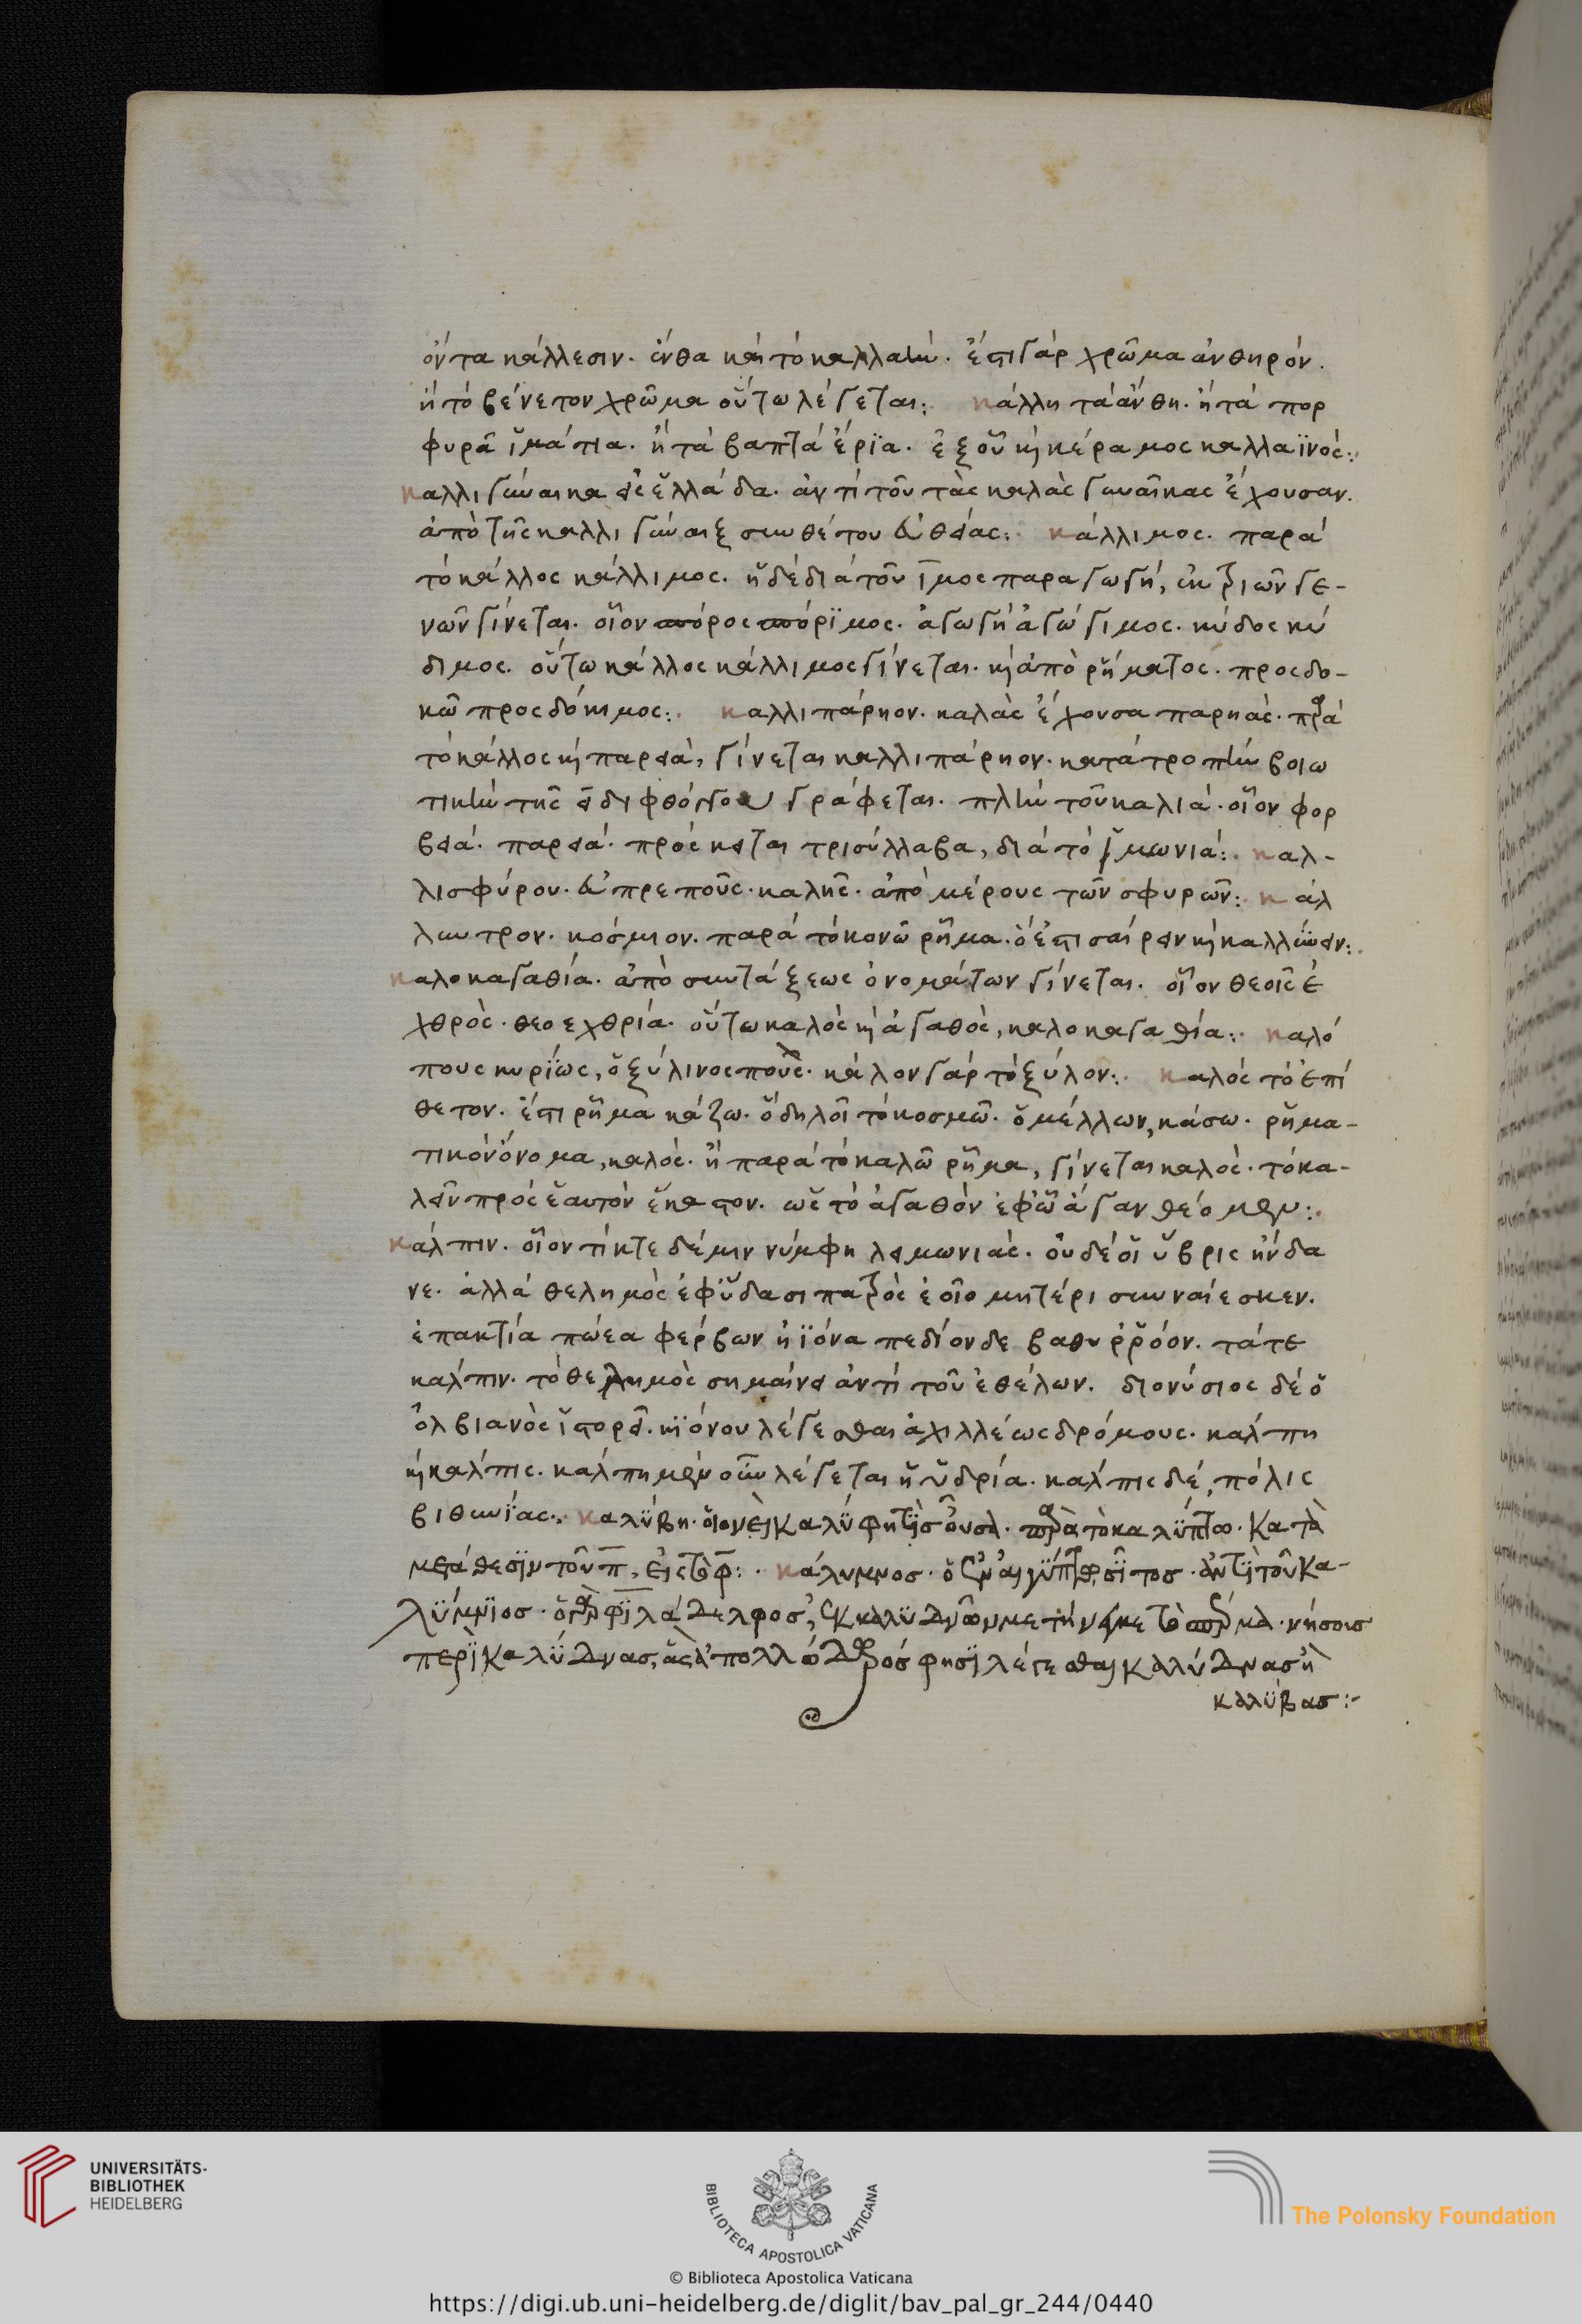 ὄντα κάλλεσιν. ἔνθα καὶ τὸ καλλαϊν. ἔστι γὰρ χρῶμα ἀνθηρόν.
ἢ τὸ βένετον χρῶμα οὕτω λέγεται: κάλλη τὰ ἄνθη. ἢ τὰ πορ
φυρᾶ ἱμάτια. ἢ τὰ βαπτὰ ἔρια. ἐξ οὗ κὶ κέραμος καλλαϊνός:
καλλιγύναικα δὲ ἑλλάδα. ἀντὶ τοῦ τὰς καλὰς γυναῖκας ἔχουσαν.
ἀπὸ τῆς καλλιγύναιξ συνθέτου εὐθείας: κάλλιμος. παρὰ
τὸ κάλλος κάλλιμος. ἡ δὲ διὰ τοῦ ῑμος παραγωγή, ἐκ τριῶν γε-
νῶν γίνεται. οἷον πόρος πόριμος. ἀγωγὴ ἀγώγιμος. κύδος κύ
διμος. οὕτω κάλλος κάλλιμος γίνεται. κὶ ἀπὸ ῥήματος. προσδο-
κῶ προσδόκιμος: καλλιπάρηον. καλὰς ἔχουσα παρηάς. παρὰ
τὸ κάλλος κὶ παρειά, γίνεται καλλιπάρηον. κατὰ τροπὴν βοιω
τικὴν τῆς ει διφθόγγου γράφεται. πλὴν τοῦ καλιά. οἷον φορ
βειά. παρειά. πρόσκειται τρισύλλαβα, διὰ τὸ μωνιά: καλ-
λισφύρου. εὐπρεποῦς. καλῆς. ἀπὸ μέρους τῶν σφυρῶν: κάλ
λυντρον. κόσμιον. παρὰ τὸ κονῶ ῥῆμα. ὅ ἐστι σαίρειν κὶ καλλύνειν:
καλοκαγαθία. ἀπὸ συντάξεως ὀνομάτων γίνεται. οἷον θεοῖς ἐ
χθρός. θεοεχθρία. οὕτω καλὸς κὶ ἀγαθός, καλοκαγαθία: καλό
πους κυρίως, ὁ ξύλινος πούς. κάλον γὰρ τὸ ξύλον: καλὸς τὸ ἐπί
θετον. ἔστι ῥῆμα κάζω. ὃ δηλοῖ τὸ κοσμῶ. ὁ μέλλων, κάσω. ῥημα-
τικὸν ὄνομα, καλός. ἢ παρὰ τὸ καλῶ ῥῆμα, γίνεται καλός. τὸ κα-
λεῖν πρὸς ἑαυτὸν ἕκαστον. ὡς τὸ ἀγαθὸν ἐφ' ᾧ ἄγαν θέομεν:
κάλπιν. οἷον τίκτε δέ μιν νύμφη λειμωνιάς. οὐδέ οἱ ὕβρις ἥνδα
νε. ἀλλὰ θελημὸς ἐφ' ὕδασι πατρὸς ἑοῖο μητέρι συνναίεσκεν.
ἐπακτία πώεα φέρβων ἠϊόνα πεδίονδε βαθυρρόον. τά τε
κάλπιν. τὸ θελημὸς σημαίνει ἀντὶ τοῦ ἐθέλων. διονύσιος δὲ ὁ
ὀλβιανὸς ἱστορεῖ. ἠϊόνου λέγεσθαι ἀχιλλέως δρόμους. κάλπη
κὶ κάλπις. κάλπη μὲν οὖν λέγεται ἡ ὑδρία. κάλπις δέ, πόλις
βιθυνίας: καλύβη. οἱονεὶ καλύφη τὶς οὖσα. παρὰ τὸ καλύπτω. κατὰ
μετάθεσιν τοῦ π̄, εἰς τὸ φ̄: κάλυμνος. ὁ ἐν αἰγύπτῳ σῖτος. ἀντὶ τοῦ κα-
λύμνιος. ὁ γὰρ φιλάδελφος, ἐκ καλυδνῶν μετήνεγκε τὸ σπέρμα. νήσοις
περὶ καλύδνας, ἃς ἀπολλόδωρος φησὶ λέγεσθαι καλύδνας ἢ
καλύβας:-
UNIVERSITÄTS-
BIBLIOTHEK
HEIDELBERG
BIBLIOTECA APOSTOLICA VATICANA
The Polonsky Foundation
© Biblioteca Apostolica Vaticana
https://digi.ub.uni-heidelberg.de/diglit/bav_pal_gr_244/0440